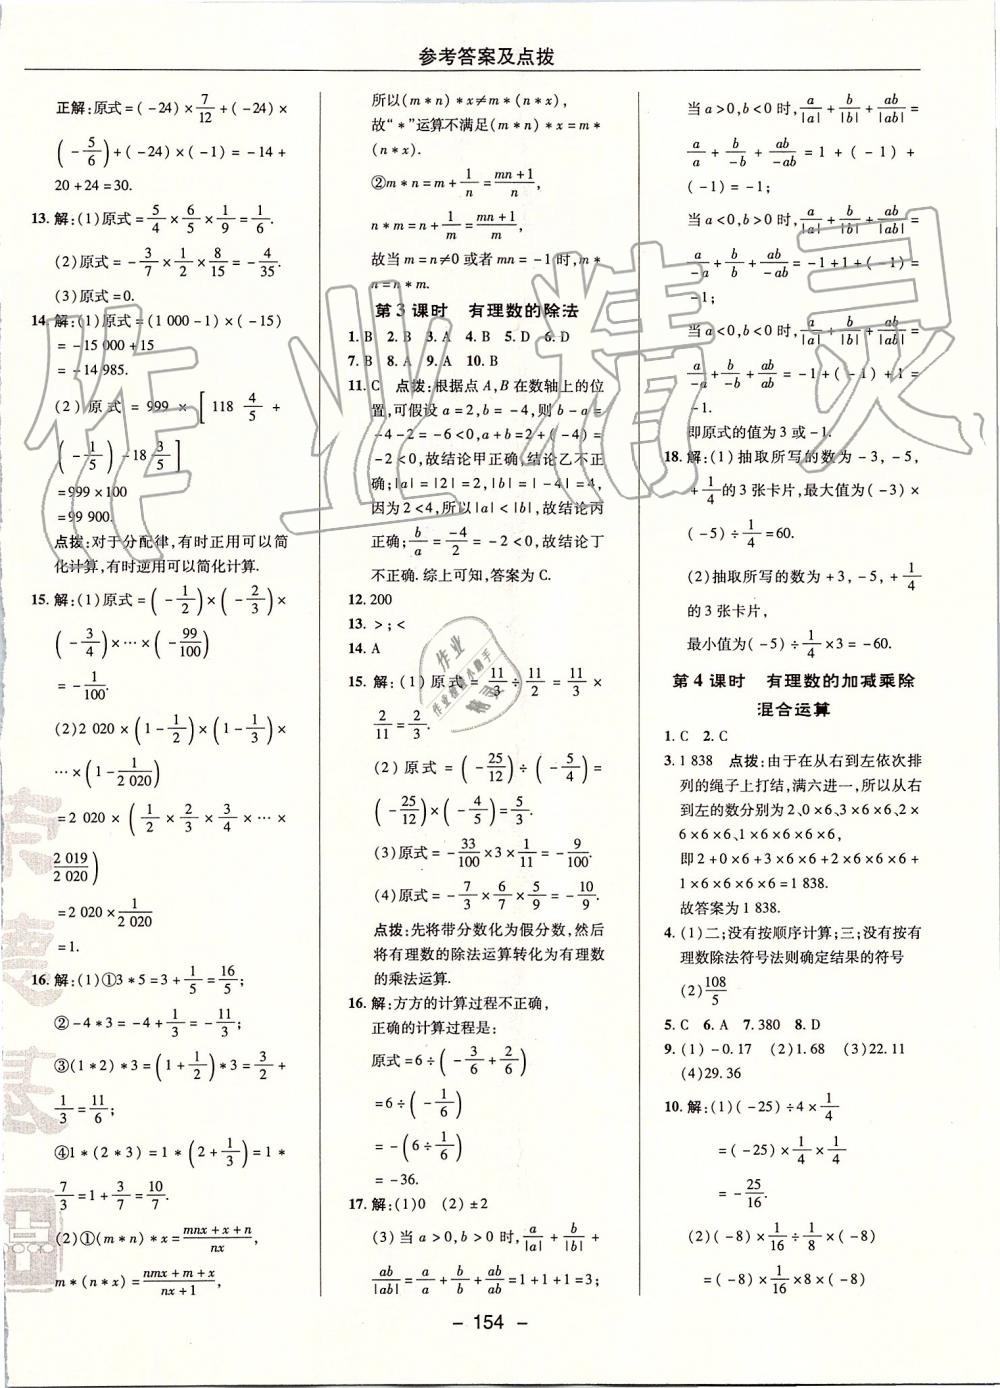 参考答案及点拨
正解:原式=(-24)×7/12+(-24)×
(-5/6)+(-24)×(-1)=-14+
20+24=30.
13. 解:(1)原式=5/4×6/5×1/9=1/6.
(2)原式=-3/7×1/2×8/15=-4/35.
(3)原式=0.
14. 解:(1)原式=(1 000-1)×(-15)
=-15 000+15
=-14 985.
(2)原式=999×[118 4/5+
(-1/5)-18 3/5]
=999×100
=99 900.
点拨:对于分配律,有时正用可以简
化计算,有时逆用可以简化计算.
15. 解:(1)原式=(-1/2)×(-2/3)×
(-3/4)×…×(-99/100)
=-1/100.
(2)2 020×(1-1/2)×(1-1/3)×
…×(1-1/2 020)
=2 020×(1/2×2/3×3/4×…×
2 019/2 020)
=2 020×1/2 020
=1.
16. 解:(1)①3*5=3+1/5=16/5;
②-4*3=-4+1/3=-11/3;
③(1*2)*3=(1+1/2)*3=3/2+
1/3=11/6;
④1*(2*3)=1*(2+1/3)=1*
7/3=1+3/7=10/7.
(2)①(m*n)*x=(mnx+x+n)/nx,
m*(n*x)=(nmx+m+x)/(nx+1),
所以(m*n)*x≠m*(n*x),
故“*”运算不满足(m*n)*x=m*
(n*x).
②m*n=m+1/n=(mn+1)/n,
n*m=n+1/m=(mn+1)/m,
故当m=n≠0或者mn=-1时,m*
n=n*m.
第3课时 有理数的除法
1. B 2. B 3. A 4. B 5. D 6. D
7. B 8. A 9. A 10. B
11. C 点拨:根据点A,B在数轴上的位
置,可假设a=2,b=-4,则b-a=
-4-2=-6<0,a+b=2+(-4)=
-2<0,故结论甲正确,结论乙不正
确;|a|=|2|=2,|b|=|-4|=4,
因为2<4,所以|a|<|b|,故结论丙
正确;b/a=-4/2=-2<0,故结论丁
不正确.综上可知,答案为C.
12. 200
13. >;<
14. A
15. 解:(1)原式=11/3÷11/2=11/3×
2/11=2/3.
(2)原式=(-25/12)÷(-5/4)=
(-25/12)×(-4/5)=5/3.
(3)原式=-33/100×3×1/11=-9/100.
(4)原式=-7/3×6/7×5/9=-10/9.
点拨:先将带分数化为假分数,然后
将有理数的除法运算转化为有理数
的乘法运算.
16. 解:方方的计算过程不正确,
正确的计算过程是:
原式=6÷(-3/6+2/6)
=6÷(-1/6)
=-(6÷1/6)
=-36.
17. 解:(1)0 (2)±2
(3)当a>0,b>0时,a/|a|+b/|b|+
ab/|ab|=a/a+b/b+ab/ab=1+1+1=3;
当a>0,b<0时,a/|a|+b/|b|+ab/|ab|=
a/a+b/-b+ab/-ab=1+(-1)+
(-1)=-1;
当a<0,b>0时,a/|a|+b/|b|+ab/|ab|=
a/-a+b/b+ab/-ab=-1+1+(-1)=
-1;
当a<0,b<0时,a/|a|+b/|b|+ab/|ab|=
a/-a+b/-b+ab/ab=-1+(-1)+1=
-1.
即原式的值为3或-1.
18. 解:(1)抽取所写的数为-3,-5,
+1/4的3张卡片,最大值为(-3)×
(-5)÷1/4=60.
(2)抽取所写的数为+3,-5,+1/4
的3张卡片,
最小值为(-5)÷1/4×3=-60.
第4课时 有理数的加减乘除
混合运算
1. C 2. C
3. 1 838 点拨:由于在从右到左依次排
列的绳子上打结,满六进一,所以从右
到左的数分别为2、0×6、3×6×6、2×
6×6×6、1×6×6×6×6,
即2+0×6+3×6×6+2×6×6×6+
1×6×6×6×6=1 838.
故答案为1 838.
4. (1)二;没有按顺序计算;三;没有按有
理数除法符号法则确定结果的符号
(2)108/5
5. C 6. A 7. 380 8. D
9. (1)-0.17 (2)1.68 (3)22.11
(4)29.36
10. 解:(1)(-25)÷4×1/4
=(-25)×1/4×1/4
=-25/16.
(2)(-8)×1/16÷1/8×(-8)
=(-8)×1/16×8×(-8)
- 154 -
作业精灵
作业
作业精灵小助手
精灵